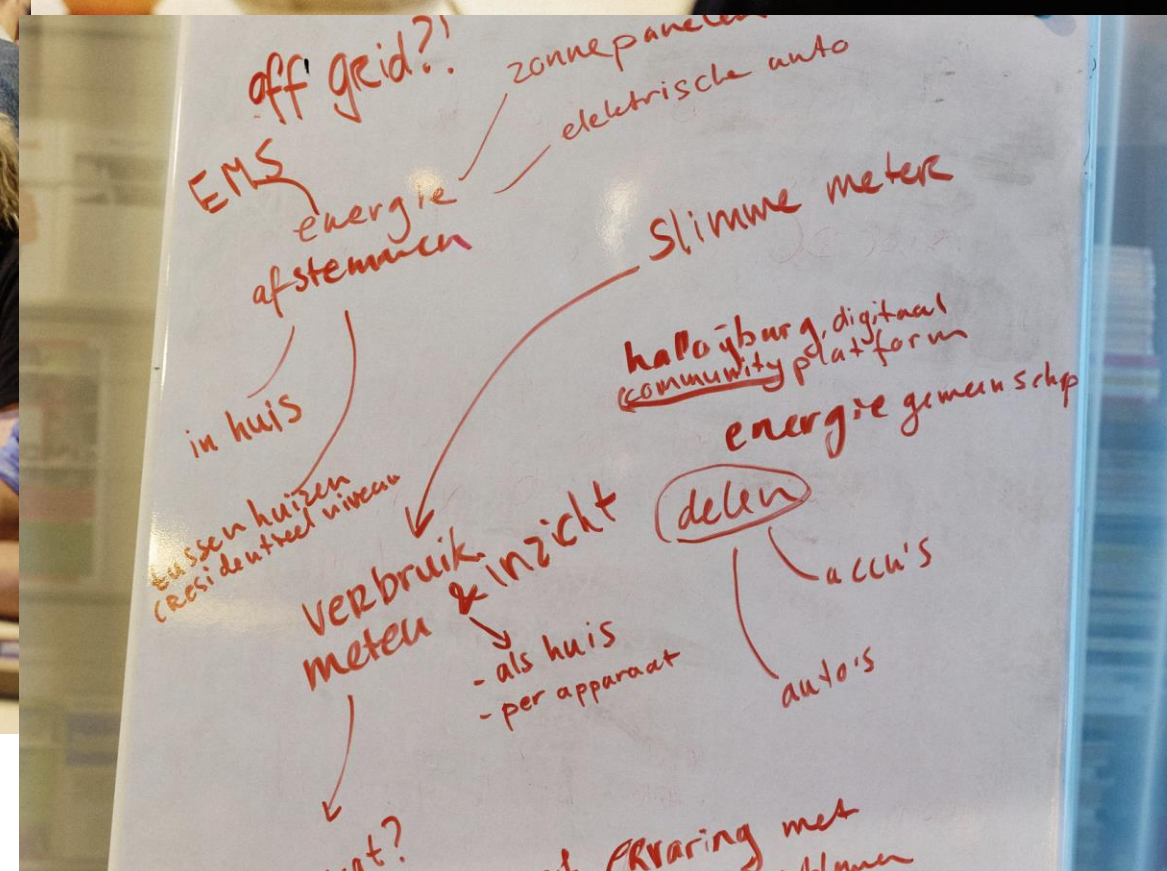 off grid?!
zonnepanelen
elektrische auto
EMS
energie
afstemmen
slimme meter
in huis
tussen huizen
(residentieel niveau
digitaal
community platform
energie gemeenschp
delen
accu's
auto's
verbruik
meten & inzicht
- als huis
- per apparaat
ervaring met